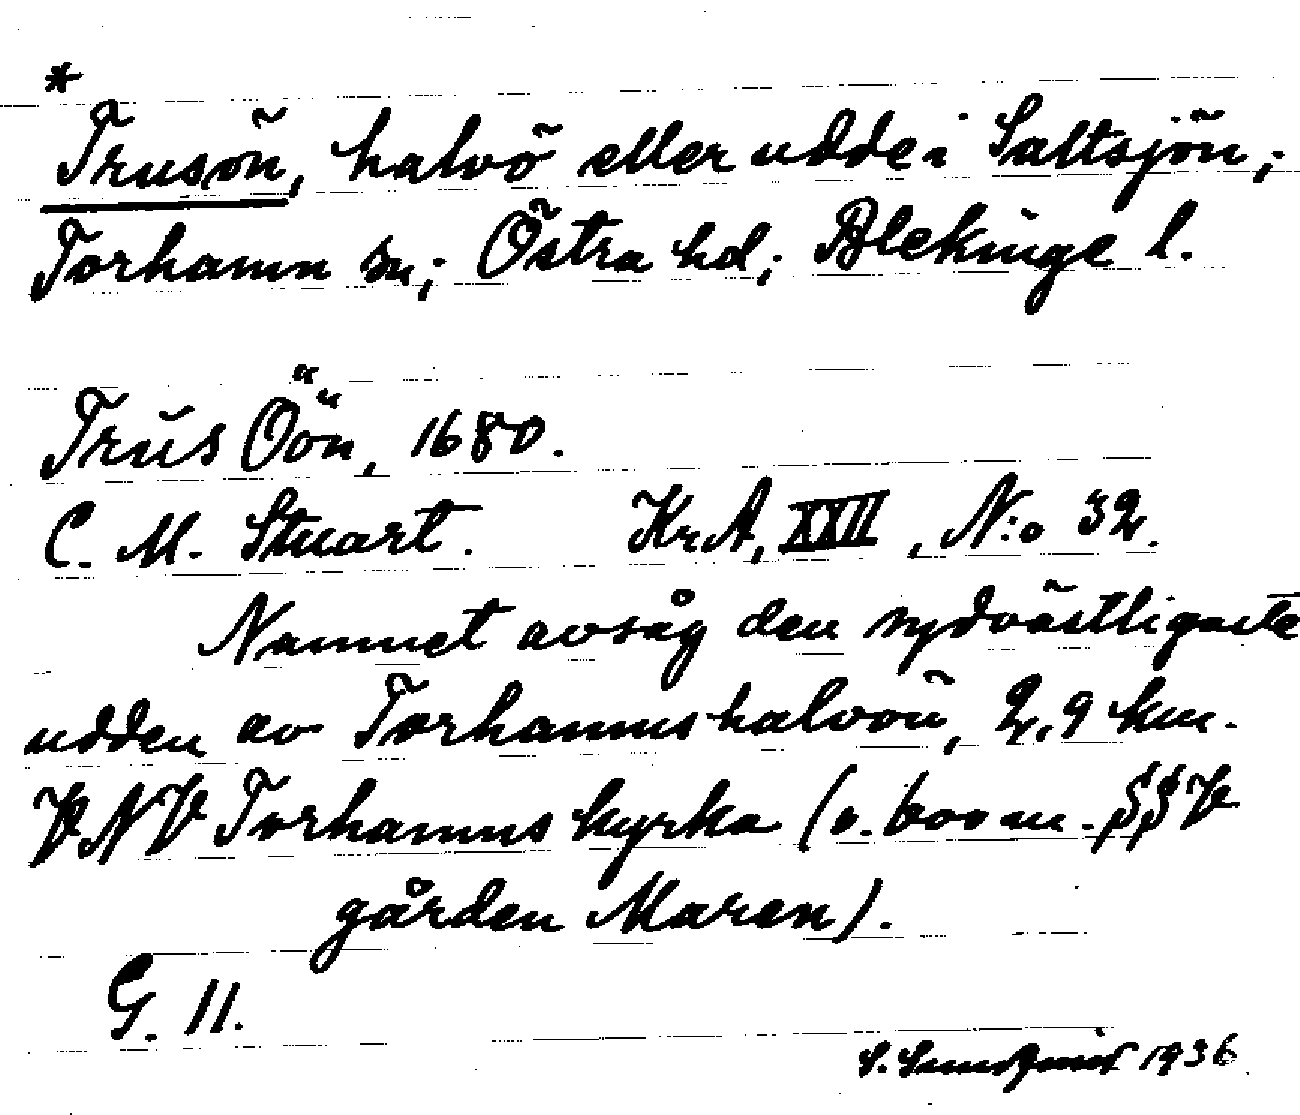 *
Trusön, halvö eller udde i Saltsjön;
Torhamn sn; Östra hd; Blekinge l.
Trüs Öön, 1680.
C. M. Stuart. KrA, XXII, N:o 32.
Namnet avsåg den sydvästligaste
udden av Torhamnshalvön, 2,9 km.
VNV Torhamns kyrka (o. 600 m. SSV
gården Maren).
G. 11.
1936